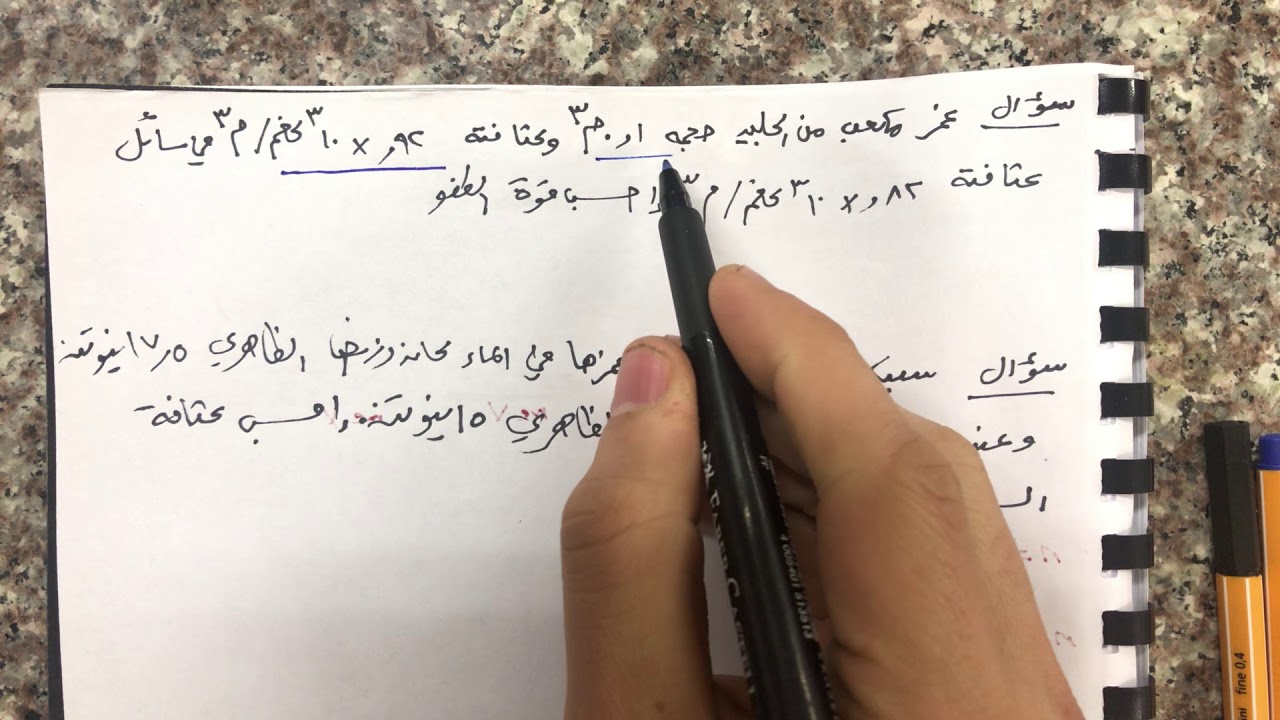 سؤال غمر مكعب من الجليد حجمه ٠,١ م٣ وكثافته ٩٢,× ١٠٣ كغم/م٣ في سائل
كثافته ٨٢,× ١٠٣ كغم/م٣ احسب قوة الطفو
سؤال غمرها في الماء كان وزنها الظاهري ١٧,٥ نيوتن
الظاهري ١٥ نيوتن، احسب كثافة
fine 0,4